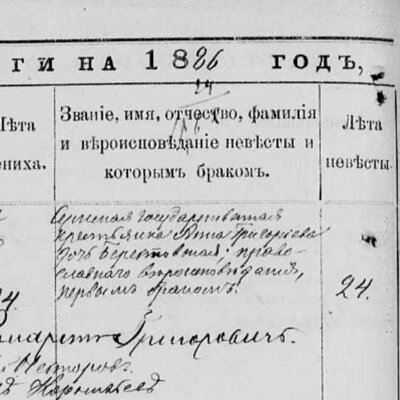 ГИ НА 1886 ГОДЪ,
24
Лѣта
ниха.
Званіе, имя, отчество, фамилія
и вѣроисповѣданіе невѣсты и
которымъ бракомъ.
Лѣта
невѣсты.
государственная
крестьянка Анна Григоріева
дочь Берестовская, право-
славнаго вѣроисповѣданія,
первымъ бракомъ.
24.
Григоровичъ.